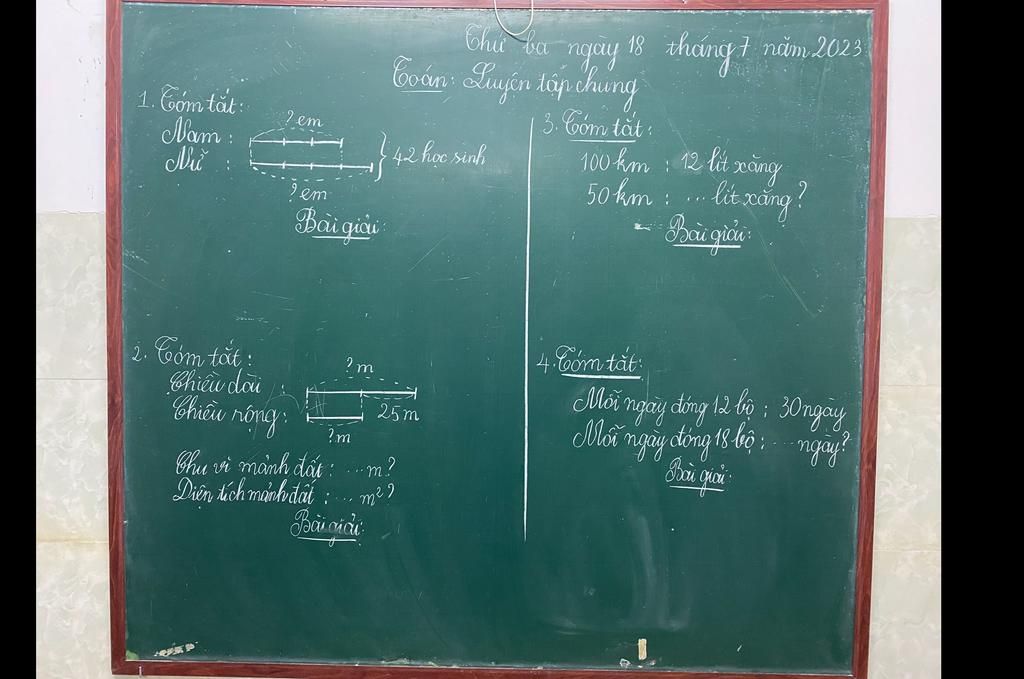 Thứ ba ngày 18 tháng 7 năm 2023
Toán: Luyện tập chung
1. Tóm tắt:
? em
Nam:
Nữ:
42 học sinh
? em
Bài giải:
2. Tóm tắt:
? m
Chiều dài:
Chiều rộng:
25m
? m
Chu vi mảnh đất: ... m?
Diện tích mảnh đất: ... m²?
Bài giải:
3. Tóm tắt:
100 km : 12 lít xăng
50 km : ... lít xăng?
Bài giải:
4. Tóm tắt:
Mỗi ngày đóng 12 bộ : 30 ngày
Mỗi ngày đóng 18 bộ : ... ngày?
Bài giải: